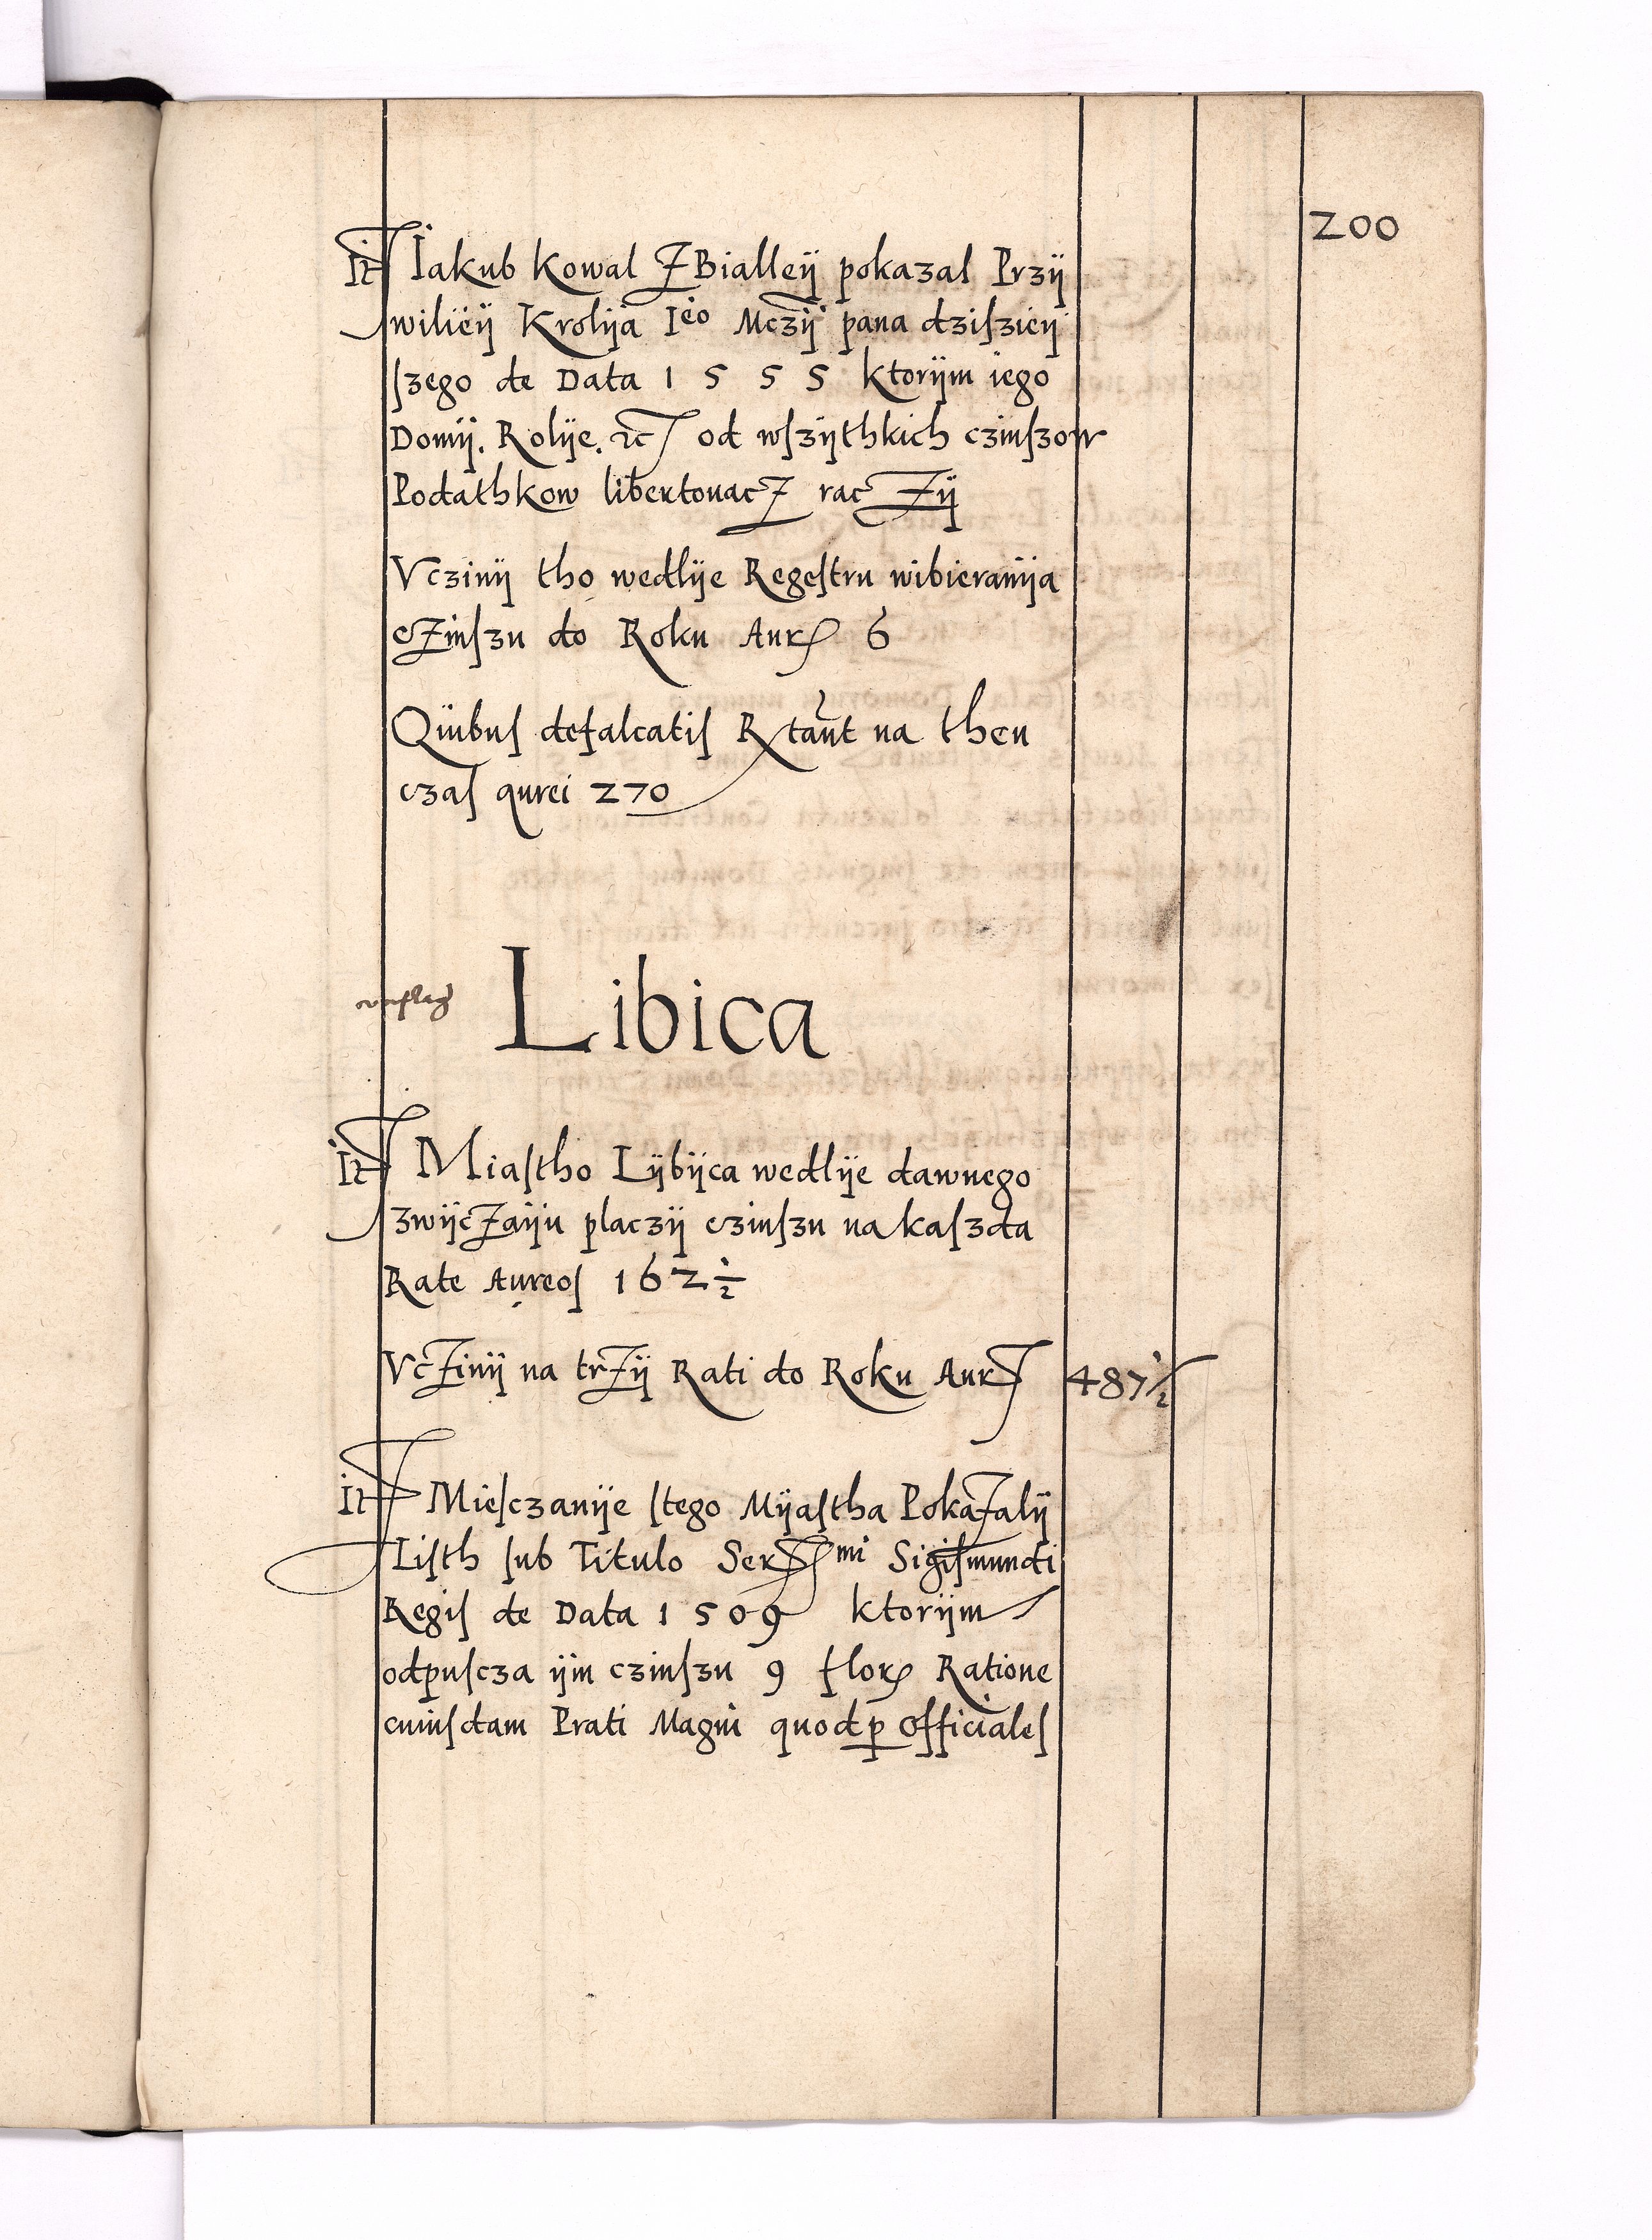 200
It Iakub kowal Z Bialleÿ pokazal Przÿ
wilieÿ Krolÿa Ieo Mczÿ pana dziſzieÿ
ſzego de Data 1 5 5 5 ktorÿm iego
Domÿ. Rolÿe. ꝛc od wſzÿthkich czinſzow
Podathkow libertouacZ racZÿ
Vczinÿ tho wedlÿe Regeſtru wibieranÿa
cZinſzu do Roku Aur 6
Quibuſ defalcatiſ Rtant na then
czaſ aurei 270
Libica
It Miaſtho Lÿbÿca wedlÿe dawnego
zwÿcZaÿu placzÿ czinſzu na kaſzda
Rate Aureoſ 162 ½
VcZinÿ na trZÿ Rati do Roku Aur 487 ½
It Mieſczanÿe ſtego Mÿaſtha PokaZalÿ
Liſth ſub Titulo Ser mi Sigiſmundi
Regiſ de Data 1 5 0 9 ktorÿm
odpuſcza ÿm czinſzu 9 flor Ratione
cuiuſdam Prati Magni quod p officialeſ